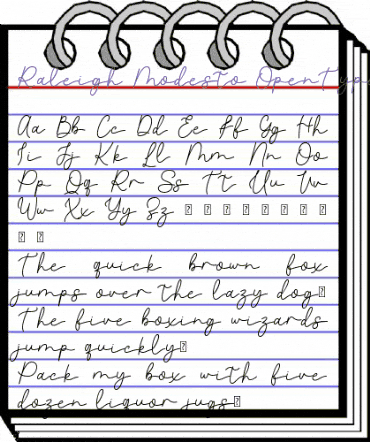 Raleigh Modesto OpenTyp
Aa Bb Cc Dd Ee Ff Gg Hh
Ii Jj Kk Ll Mm Nn Oo
Pp Qq Rr Ss Tt Uu Vv
Ww Xx Yy Zz
The quick brown fox
jumps over the lazy dog
The five boxing wizards
jump quickly
Pack my box with five
dozen liquor jugs